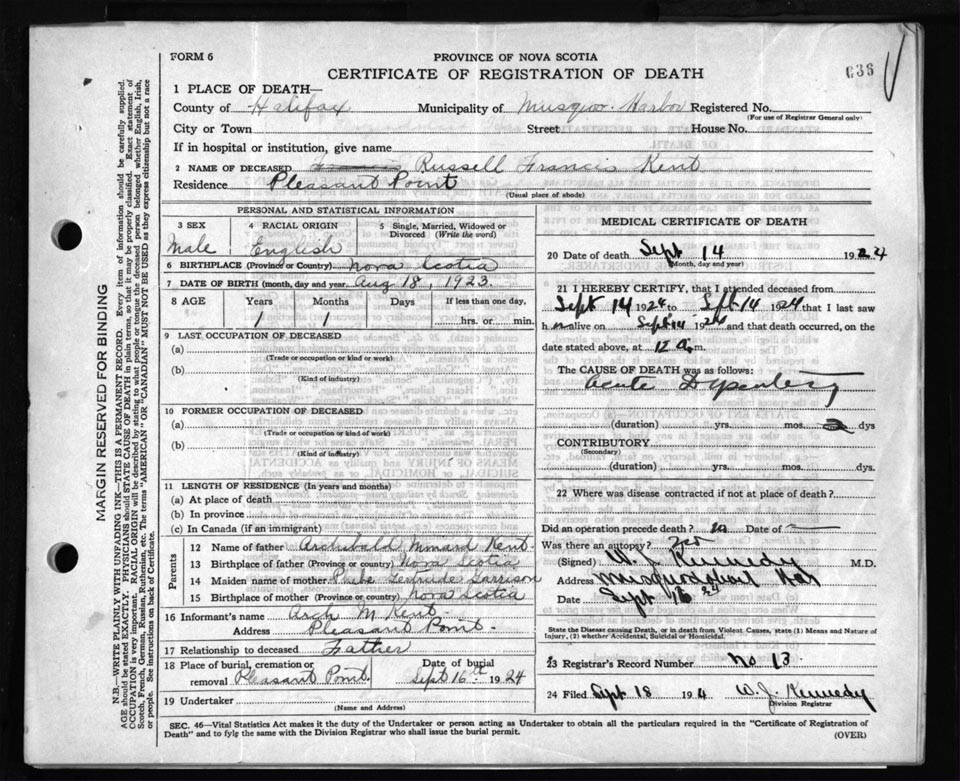 FORM 6
PROVINCE OF NOVA SCOTIA
CERTIFICATE OF REGISTRATION OF DEATH
636
1 PLACE OF DEATH—
County of Halifax Municipality of Musquo. Harbor Registered No.
(For use of Registrar General only)
City or Town Street House No.
If in hospital or institution, give name
2 NAME OF DECEASED Francis Russell Francis Kent
Residence Pleasant Point
(Usual place of abode)
PERSONAL AND STATISTICAL INFORMATION
3 SEX
Male
4 RACIAL ORIGIN
English
5 Single, Married, Widowed or Divorced (Write the word)
6 BIRTHPLACE (Province or Country) Nova Scotia
7 DATE OF BIRTH (month, day and year) Aug 18, 1923.
8 AGE Years Months Days If less than one day,
1 1 hrs. or min.
9 LAST OCCUPATION OF DECEASED
(a)
(Trade or occupation or kind of work)
(b)
(Kind of industry)
10 FORMER OCCUPATION OF DECEASED
(a)
(Trade or occupation or kind of work)
(b)
(Kind of industry)
11 LENGTH OF RESIDENCE (In years and months)
(a) At place of death
(b) In province
(c) In Canada (if an immigrant)
Parents
12 Name of father Archibald Kent
13 Birthplace of father (Province or country) Nova Scotia
14 Maiden name of mother Phebe Gertrude Garrison
15 Birthplace of mother (Province or country) Nova Scotia
16 Informant's name Arch M Kent
Address Pleasant Point
17 Relationship to deceased Father
18 Place of burial, cremation or removal Pleasant Point. Date of burial Sept 16th 1924
19 Undertaker
(Name and Address)
MEDICAL CERTIFICATE OF DEATH
20 Date of death Sept 14 1924
(Month, day and year)
21 I HEREBY CERTIFY, that I attended deceased from
Sept 14 1924 to Sept 14 1924 that I last saw
h m alive on Sept 14 1924 and that death occurred, on
date stated above, at 12 a.m.
The CAUSE OF DEATH was as follows:
Acute Dysentery
(duration) yrs. mos. dys.
CONTRIBUTORY
(Secondary)
(duration) yrs. mos. dys.
22 Where was disease contracted if not at place of death?
Did an operation precede death? no Date of —
Was there an autopsy?
(Signed) W. J. Kennedy M.D.
Address Musquodoboit Har
Date Sept 16 24
State the Disease causing Death, or in death from Violent Causes, state (1) Means and Nature of Injury, (2) whether Accidental, Suicidal or Homicidal.
23 Registrar's Record Number No 13.
24 Filed Sept 18 1924 W. J. Kennedy
Division Registrar
SEC. 46—Vital Statistics Act makes it the duty of the Undertaker or person acting as Undertaker to obtain all the particulars required in the "Certificate of Registration of
Death" and to fyle the same with the Division Registrar who shall issue the burial permit.
(OVER)
MARGIN RESERVED FOR BINDING
N.B.—WRITE PLAINLY WITH UNFADING INK—THIS IS A PERMANENT RECORD. Every item of information should be carefully supplied.
AGE should be stated EXACTLY. PHYSICIANS should STATE CAUSE OF DEATH in plain terms, so that it may be properly classified. Exact statement of
OCCUPATION is very important. RACIAL ORIGIN will be described by stating to what people or tongue the deceased person belonged whether English, Irish,
Scotch, French, German, Russian, Ruthenian, etc. The terms "AMERICAN" or "CANADIAN" MUST NOT BE USED as they express citizenship but not a race
or people. See instructions on back of Certificate.